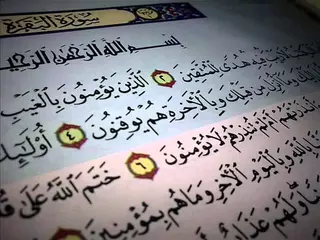 سُورَةُ الْبَقَرَةِ
بِسْمِ اللَّهِ الرَّحْمَٰنِ الرَّحِيمِ
رَيْبَ فِيهِ هُدًى لِلْمُتَّقِينَ ٢ الَّذِينَ يُؤْمِنُونَ بِالْغَيْبِ
أُنْزِلَ مِنْ قَبْلِكَ وَبِالْآخِرَةِ هُمْ يُوقِنُونَ ٤ أُولَٰئِكَ
ءَأَنْذَرْتَهُمْ أَمْ لَمْ تُنْذِرْهُمْ لَا يُؤْمِنُونَ ٦ خَتَمَ اللَّهُ عَلَىٰ
بِاللَّهِ وَبِالْيَوْمِ الْآخِرِ وَمَا هُمْ بِمُؤْمِنِينَ
وَلَهُمْ عَذَابٌ